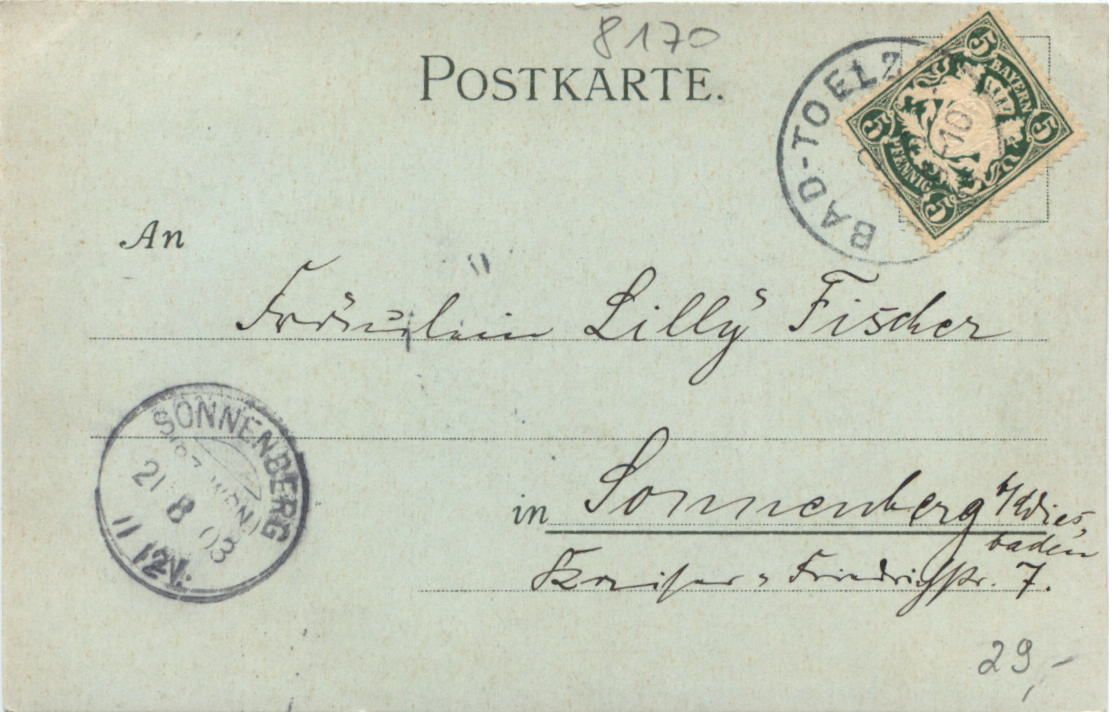 8170
POSTKARTE.
BAD-TOELZ
5 BAYERN 5
5 PFENNIG 5
10
An
Fräulein Lilly Fischer
SONNENBERG
21 8 03
11-12V.
in Sonnenberg b/Wies,
baden
Kaiser-Friedrichstr. 7.
29,-